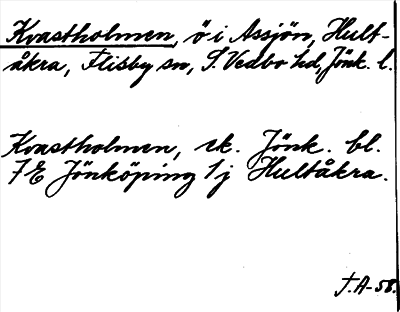 Kvastholmen, ö i Assjön, Hult-
åkra, Flisby sn, S. Vedbo hd, Jönk. l.
Kvastholmen, ek. Jönk. bl.
7E Jönköping 1j Hultåkra.
T.A-58.